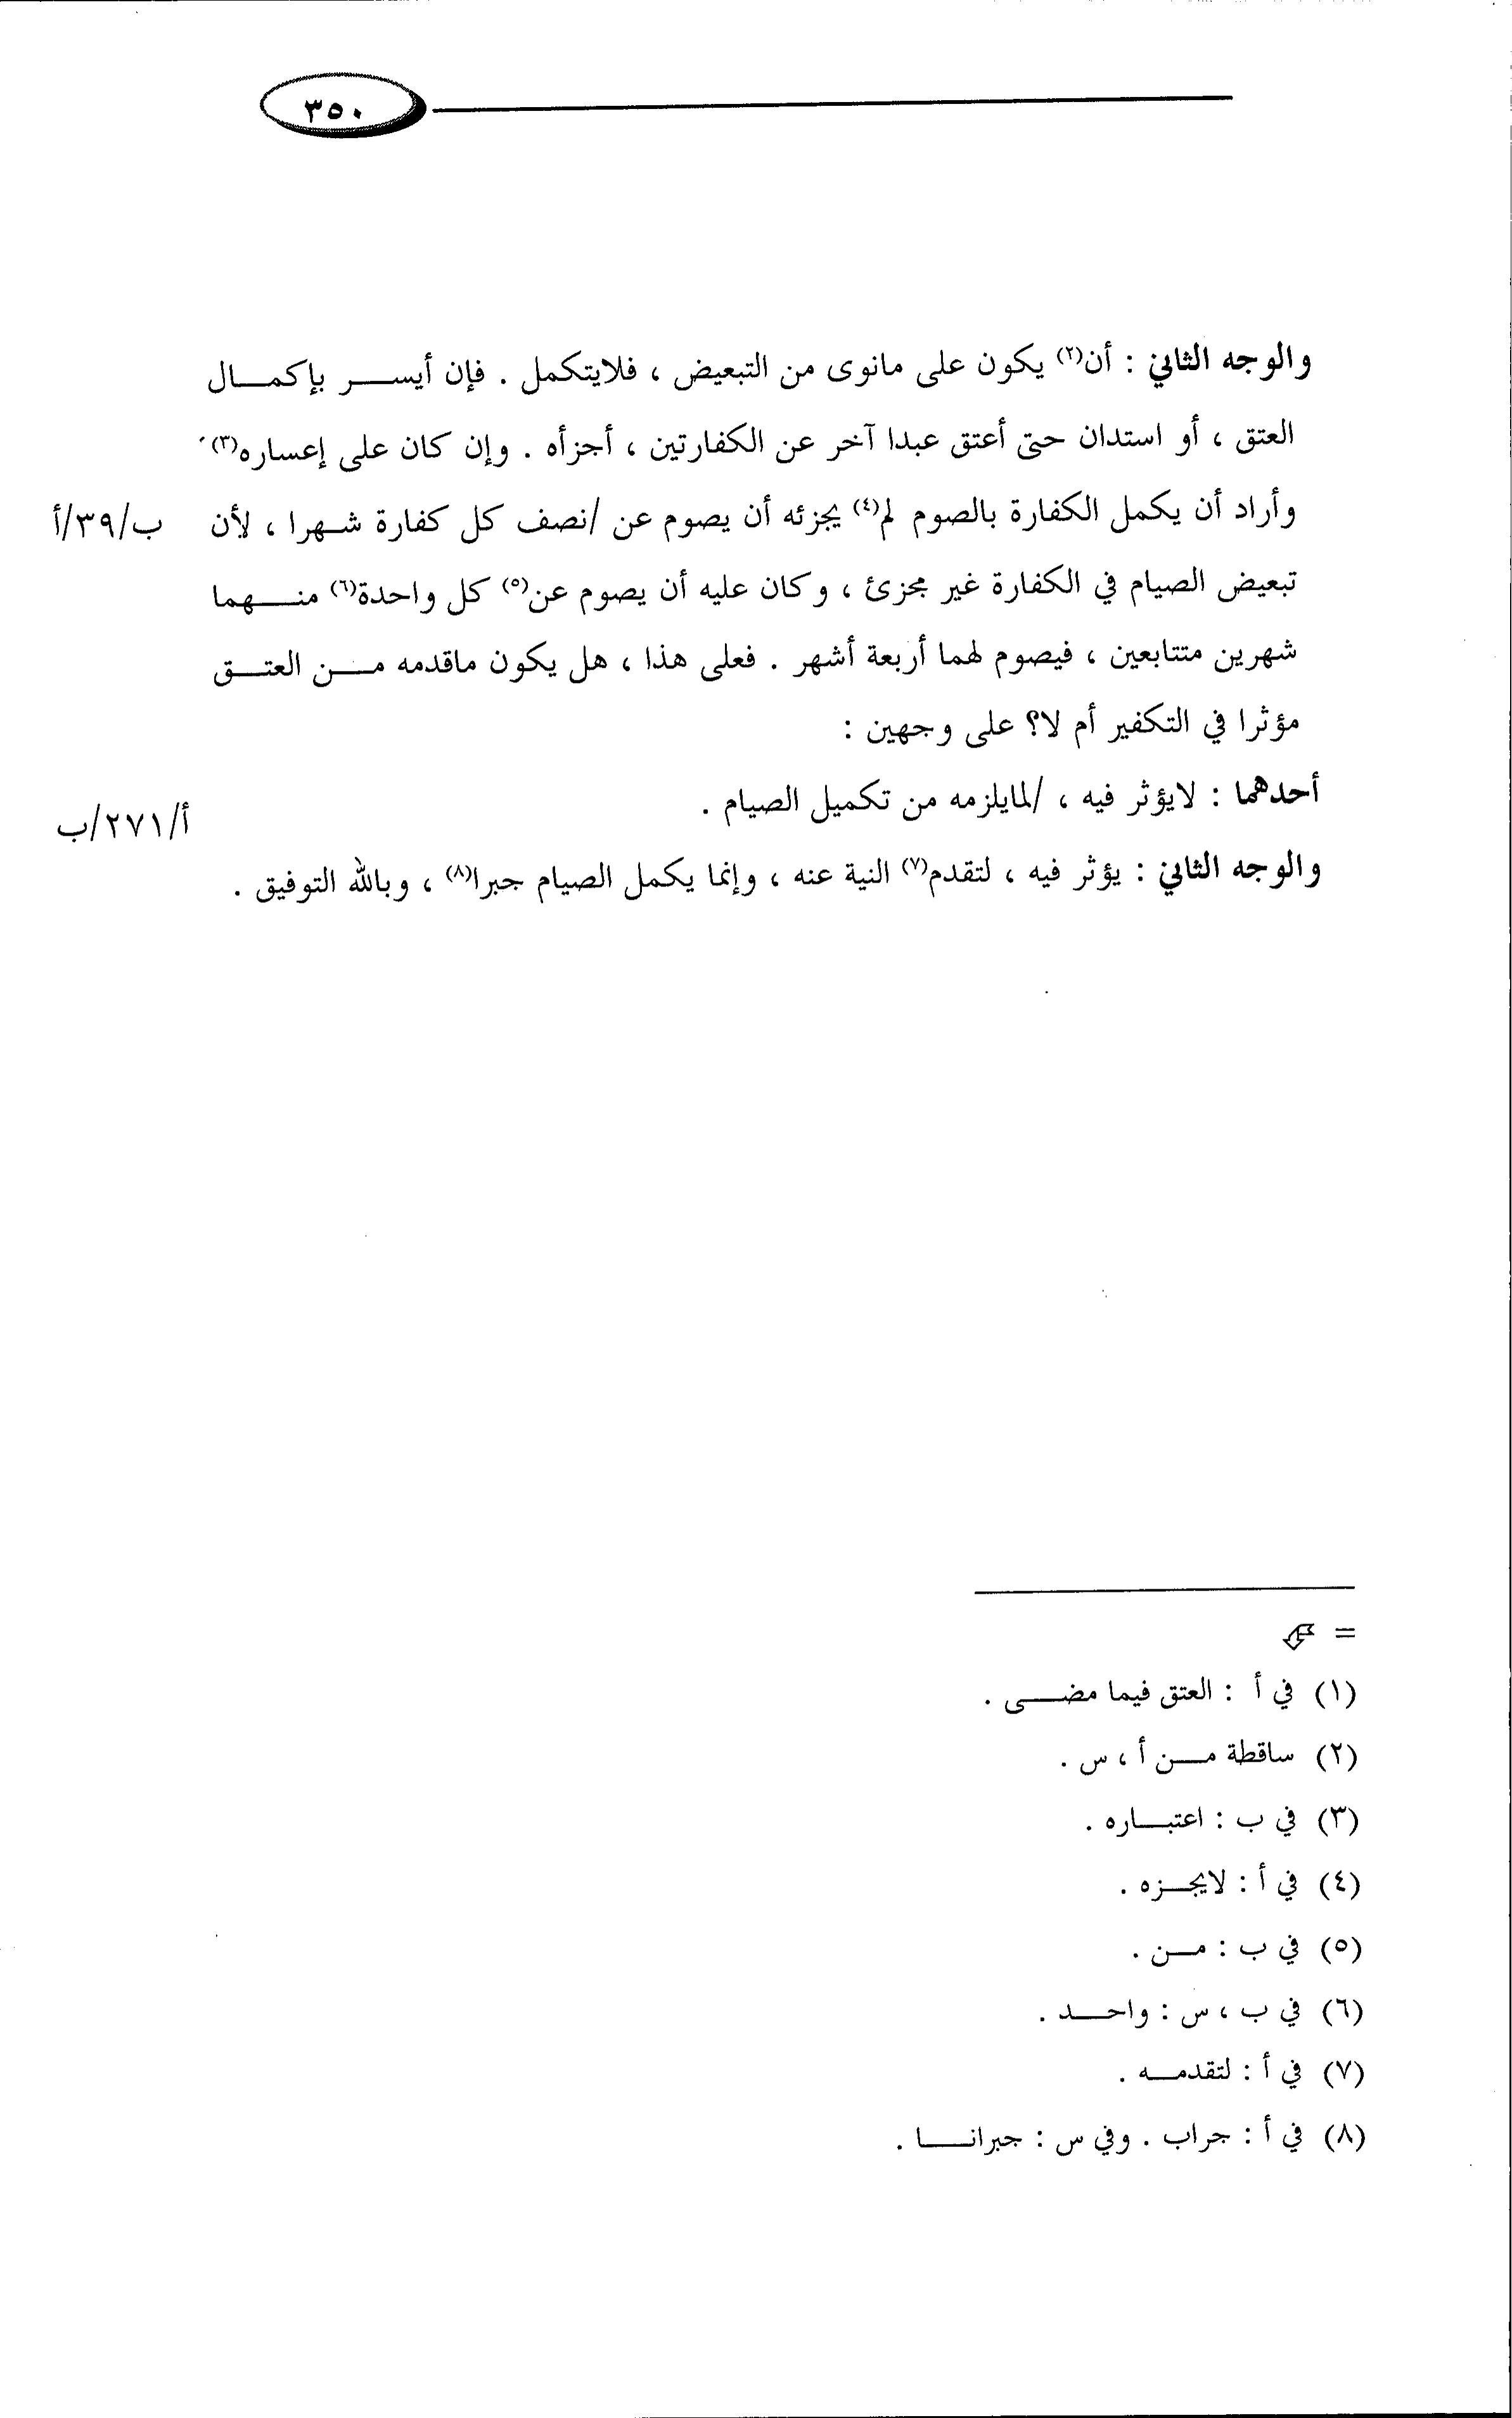 ٣٥٠
والوجه الثاني : أن(٢) يكون على مانوى من التبعيض ، فلايتكمل . فإن أيسر بإكمال
العتق ، أو استدان حتى أعتق عبدا آخر عن الكفارتين ، أجزأه . وإن كان على إعساره(٣)
وأراد أن يكمل الكفارة بالصوم لم(٤) يجزئه أن يصوم عن /نصف كل كفارة شهرا ، لأن
ب/٣٩/أ
تبعيض الصيام في الكفارة غير مجزئ ، وكان عليه أن يصوم عن(٥) كل واحدة(٦) منهما
شهرين متتابعين ، فيصوم لهما أربعة أشهر . فعلى هذا ، هل يكون ماقدمه من العتق
مؤثرا في التكفير أم لا؟ على وجهين :
أحدهما : لايؤثر فيه ، /لمايلزمه من تكميل الصيام .
أ/٢٧١/ب
والوجه الثاني : يؤثر فيه ، لتقدم(٧) النية عنه ، وإنما يكمل الصيام جبرا(٨) ، وبالله التوفيق .
=
(١) في أ : العتق فيما مضى .
(٢) ساقطة من أ ، س .
(٣) في ب : اعتباره .
(٤) في أ : لايجزه .
(٥) في ب : من .
(٦) في ب ، س : واحد .
(٧) في أ : لتقدمه .
(٨) في أ : جراب . وفي س : جبرانا .